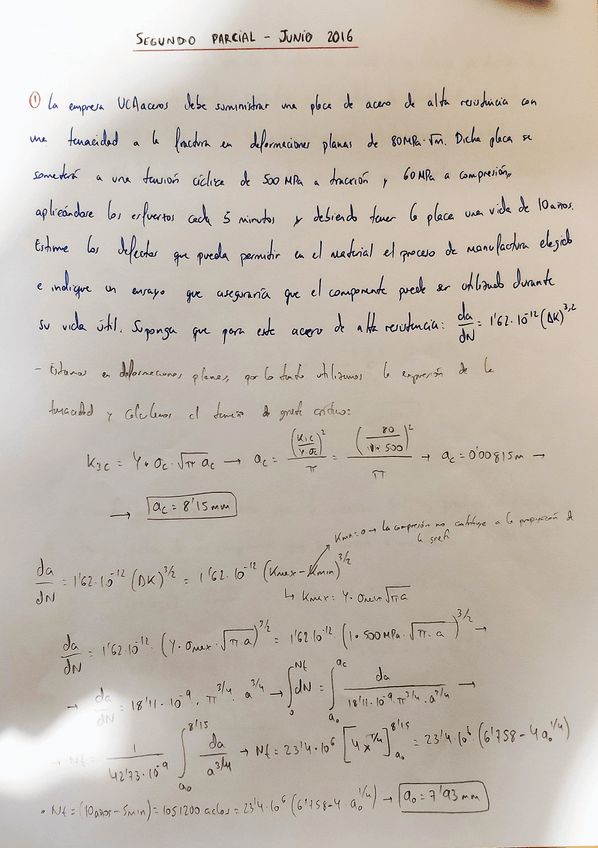 SEGUNDO PARCIAL - JUNIO 2016
① La empresa UCAaceros debe suministrar una placa de acero de alta resistencia con
una tenacidad a la fractura en deformaciones planas de 80 MPa·√m. Dicha placa se
someterá a una tensión cíclica de 500 MPa a tracción y 60 MPa a compresión,
aplicándose los esfuerzos cada 5 minutos y debiendo tener la placa una vida de 10 años.
Estime los defectos que pueda permitir en el material el proceso de manufactura elegido
e indique un ensayo que aseguraría que el componente puede ser utilizado durante
su vida útil. Suponga que para este acero de alta resistencia: da/dN = 1'62·10^-12 (ΔK)^3,2
- Estamos en deformaciones planas, por lo tanto utilizamos la expresión de la
tenacidad y calculamos el tamaño de grieta crítico:
K_IC = Y·σc·√(π a_c) → a_c = (K_IC/(Y·σc))^2/π = (80/(1·500))^2/π → a_c = 0'00815 m →
→ a_c = 8'15 mm
Kmin = 0 → La compresión no contribuye a la propagación de
la grieta
da/dN = 1'62·10^-12 (ΔK)^3/2 = 1'62·10^-12 (Kmax - Kmin)^3/2
↳ Kmax = Y·σmax·√(πa)
da/dN = 1'62·10^-12 · (Y·σmax·√(π·a))^3/2 = 1'62·10^-12 (1·500MPa·√(π·a))^3/2 →
→ da/dN = 18'11·10^-9 · π^3/4 · a^3/4 → ∫_0^Nf dN = ∫_a0^ac da/(18'11·10^-9·π^3/4·a^3/4) →
→ Nf = 1/(42'73·10^-9) ∫_a0^8'15 da/a^3/4 → Nf = 23'4·10^6 [4x^1/4]_a0^8'15 = 23'4·10^6 (6'758 - 4a0^1/4)
• Nf = (10años - 5min) = 1051200 ciclos = 23'4·10^6 (6'758 - 4·a0^1/4) → a0 = 7'93 mm